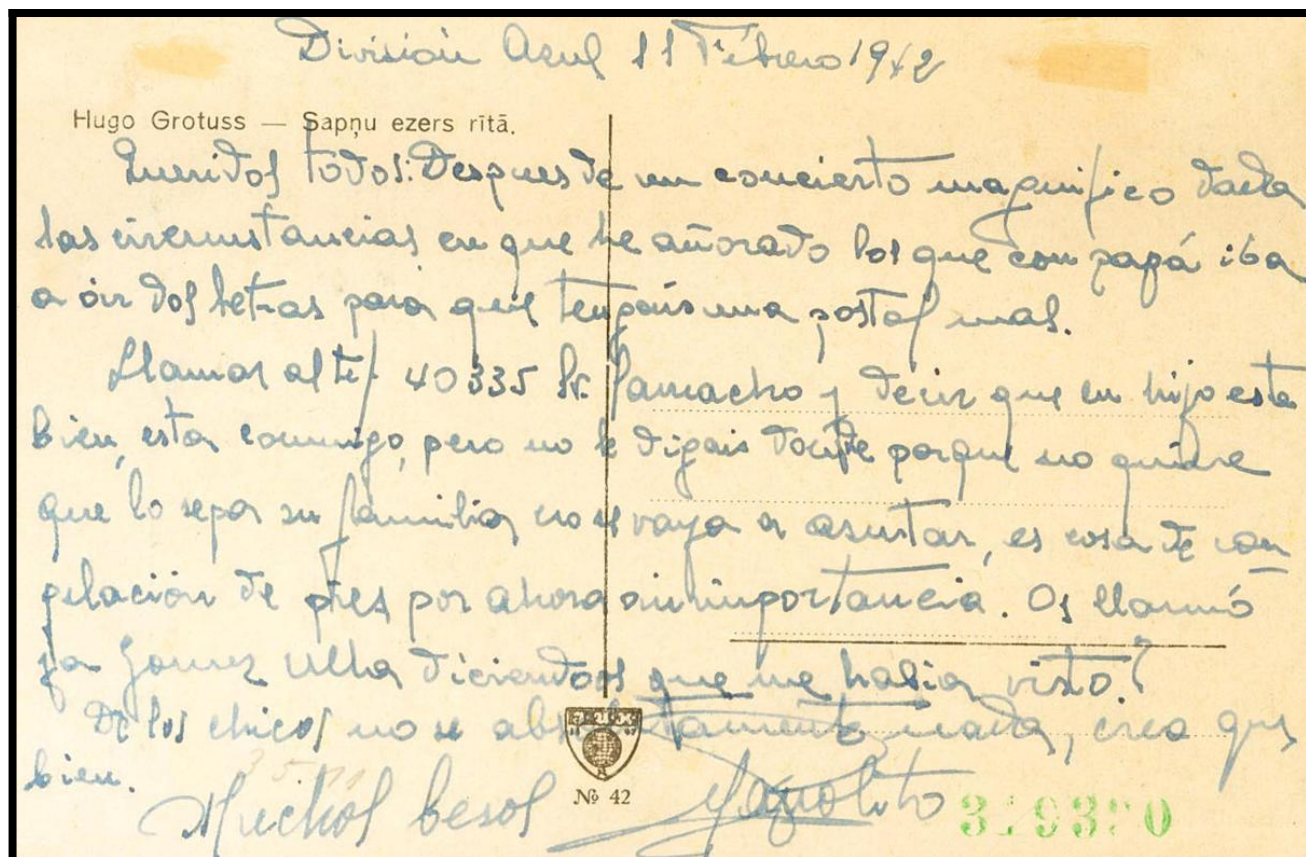 División Azul 11 Febrero 1942
Hugo Grotuss — Sapņu ezers rītā.
Queridos todos: Despues de un concierto magnifico dada
las circunstancias en que he añorado los que con papá iba
a oir dos letras para que tengais una postal mas.
Llamar al telf 40335 Sr. Camacho y decir que su hijo esta
bien, esta conmigo, pero no le digais donde porque no quiere
que lo sepa su familia no se vaya a asustar, es cosa de con
gelación de pies por ahora sin importancia. Os llamó
ya Gomez Ulla diciendoos que me habia visto?
De los chicos no se absolutamente nada, creo que
bien.
Muchos besos
№ 42